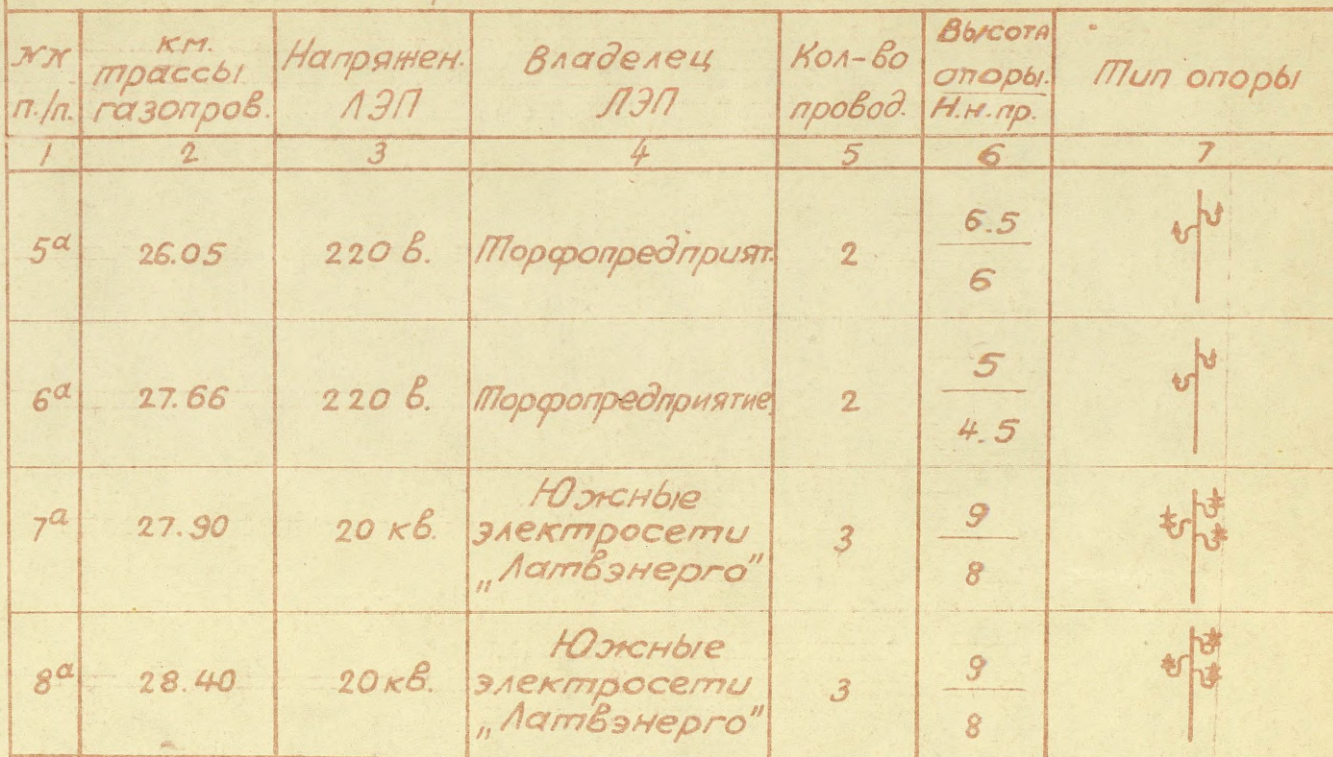 NN п./п. | км. трассы газопров. | Напряжен. ЛЭП | Владелец ЛЭП | Кол-во провод. | Высота опоры. Н.н.пр. | Тип опоры
1 | 2 | 3 | 4 | 5 | 6 | 7
5а | 26.05 | 220 в. | Торфопредприят. | 2 | 6.5 / 6
6а | 27.66 | 220 в. | Торфопредприятие | 2 | 5 / 4.5
7а | 27.90 | 20 кв. | Южные электросети „Латвэнерго" | 3 | 9 / 8
8а | 28.40 | 20 кв. | Южные электросети „Латвэнерго" | 3 | 9 / 8